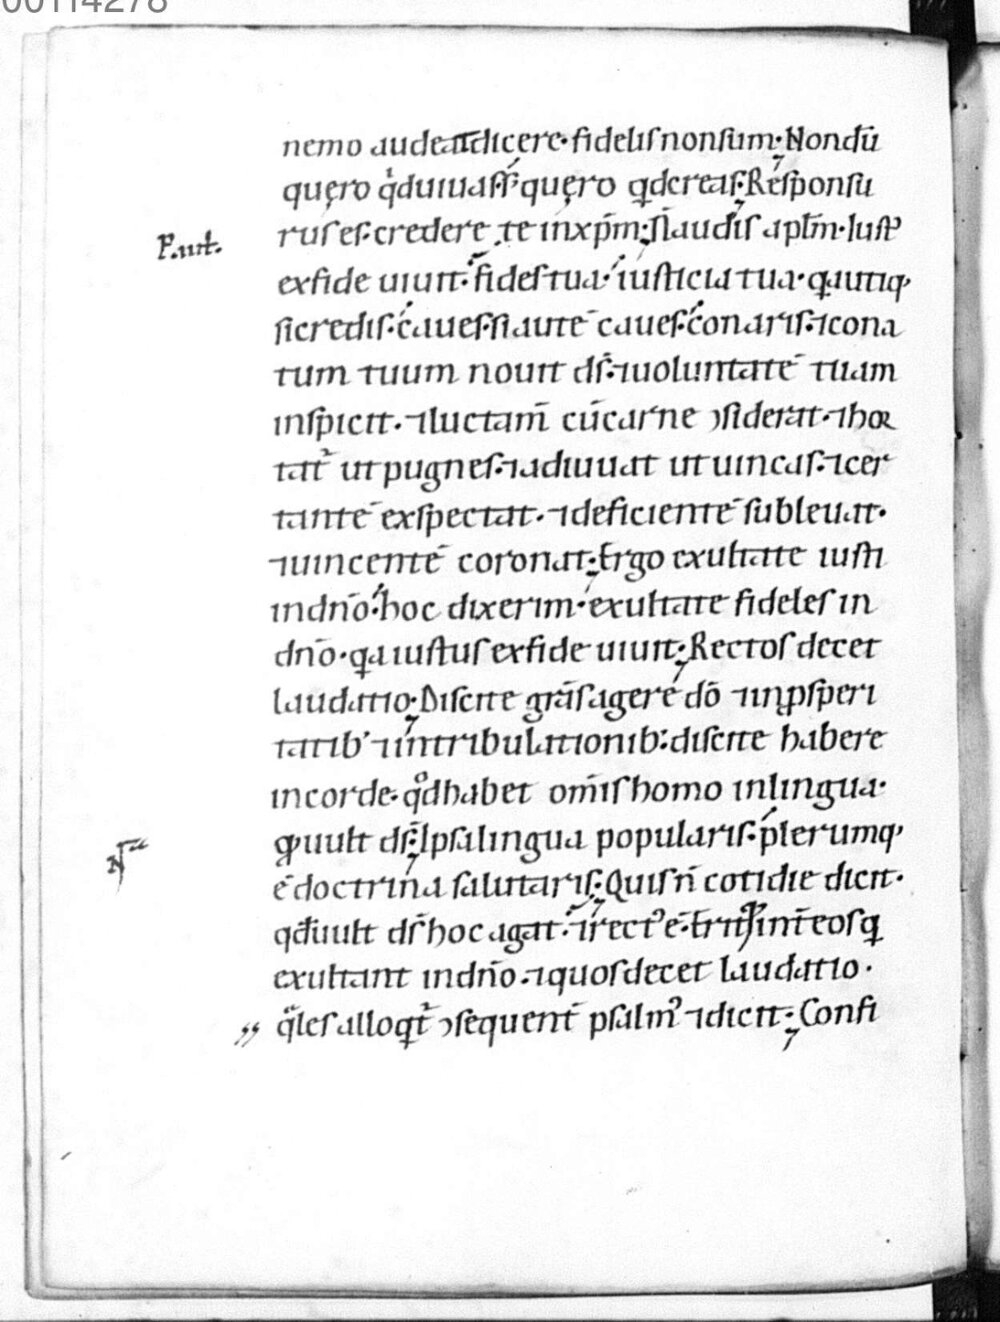 00114278
nemo audeat dicere· fidelis non sum· Nondū
quęro qͥd uiuas· sꝫ quęro qͥd credas; Responsu
rus es· credere te in xp̄m; Ñ audis apl̄m· Iustꝰ
P. aut.
ex fide uiuit· fides tua· iusticia tua· qa utiqꝫ
si credis· caues· si autē caues· conaris· ⁊ cona
tum tuum nouit ds̄· ⁊ uoluntatē tuam
inspicit· ⁊ luctam̄ cū carne ɔsiderat· ⁊ hor
tat᷑ ut pugnes· ⁊ adiuuat ut uincas· ⁊ cer
tantē exspectat· ⁊ deficientē subleuat·
⁊ uincentē coronat; Ergo exultate iusti
in dn̄o· hoc dixerim· exultate fideles in
dn̄o· qa iustus ex fide uiuit; Rectos decet
laudatio; Discite grās agere dō ⁊ in ꝓsperi
tatibꝰ ⁊ in tribulationib;· discite habere
in corde· qͦd habet om̄is homo in lingua·
qͦd uult ds̄; Ipsa lingua popularis· plerumqꝫ
ē doctrina salutaris; Quis n̄ cotidie dicit·
qd̄ uult ds̄ hoc agat· ⁊ rectꝰ ē· Erit ꝗ int̄ eos q
exultant in dn̄o· ⁊ quos decet laudatio·
qͣles alloqt᷑ ɔsequent᷑ psalmꝰ ⁊ dicit; Confi